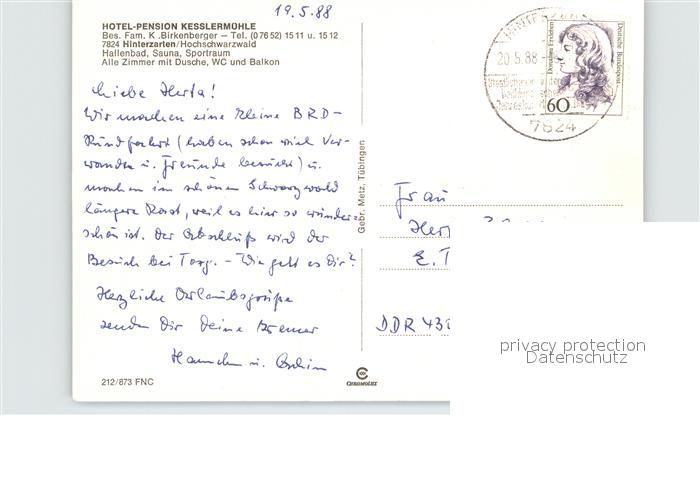 19.5.88
HOTEL-PENSION KESSLERMÜHLE
Bes. Fam. K .Birkenberger – Tel. (0 76 52) 15 11 u. 15 12
7824 Hinterzarten/Hochschwarzwald
Hallenbad, Sauna, Sportraum
Alle Zimmer mit Dusche, WC und Balkon
Liebe Herta!
Wir machen eine kleine BRD-
Rundfahrt (haben schon viel Ver-
wandte u. Freunde besucht) u.
machen im schönen Schwarzwald
längere Rast, weil es hier so wunder-
schön ist. Der Abschluß wird der
Besuch bei - Wie geht es Dir?
Herzliche Urlaubsgrüße
senden Dir Deine
u.
212/873 FNC
Gebr. Metz, Tübingen
CHROMOLUX
HINTERZARTEN
20.5.88
7824
Dorothea Erxleben
Deutsche Bundespost
60
Frau
Her
E. T
DDR 43
privacy protection
Datenschutz